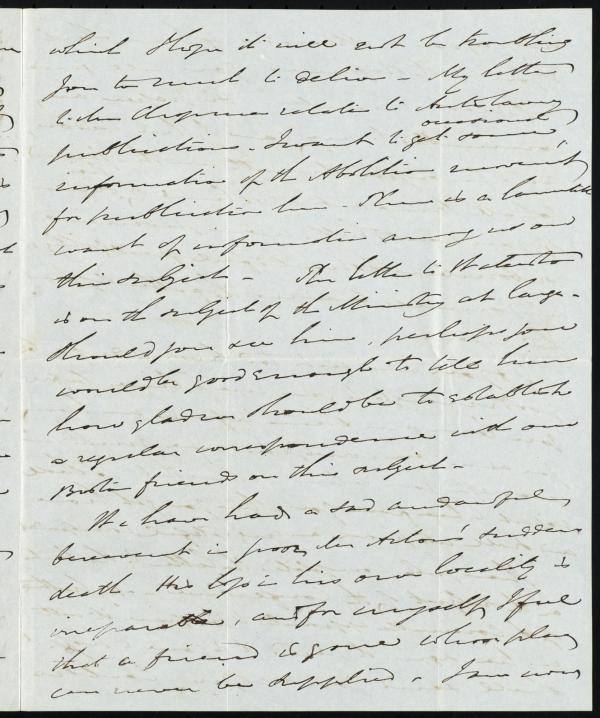 which I hope it will not be troubling
you too much to deliver - My letter
to Mr Chapman relates to Antislavery
publications - I want to get some occasional
information of the Abolition movements
for publication here. There is a lamentable
want of information among us on
this subject - The letter to Waterston
is on the subject of the Ministry at large -
Should you see him, perhaps you
would be good enough to tell him
how glad we should be to establish
a regular correspondence with our
Boston friends on this subject -
We have had a sad and awful
bereavement in poor Mr sudden
death. His loss in his own locality is
irreparable, and for myself I feel
that a friend is gone whose place
can never be supplied. I am now